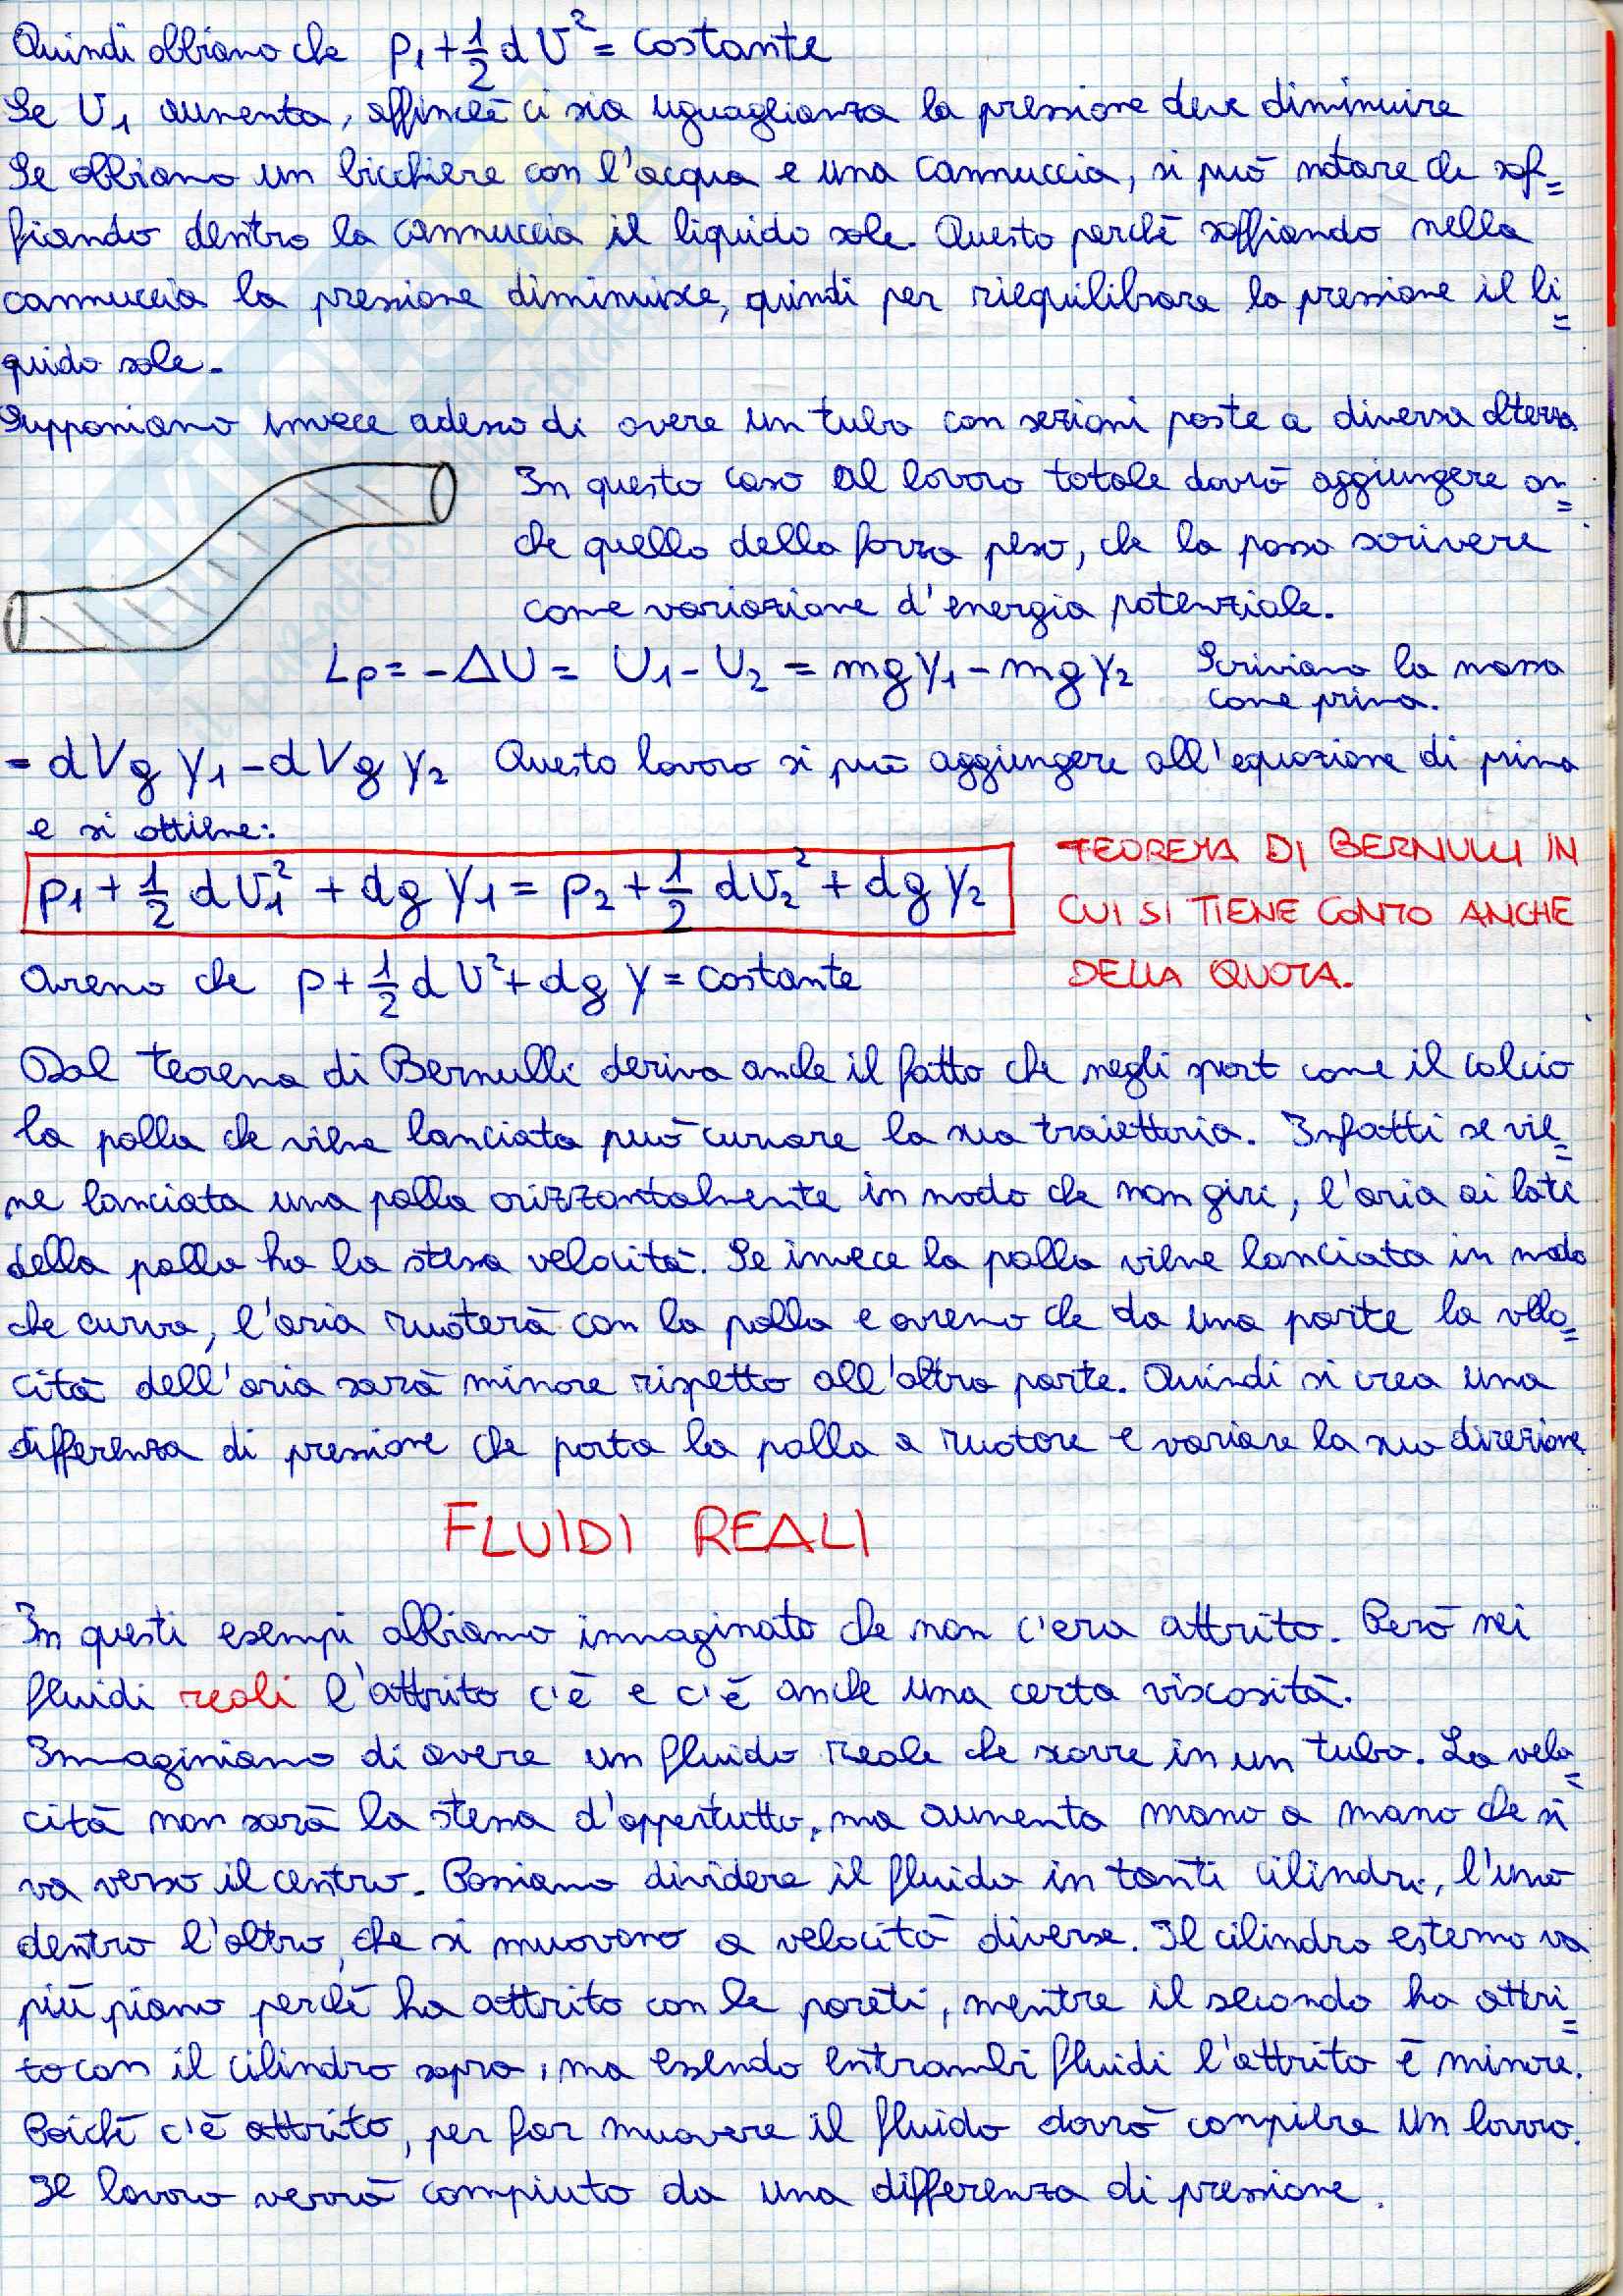 Quindi abbiamo che p₁ + 1/2 d v² = costante
Se v₁ aumenta, affinché ci sia uguaglianza la pressione deve diminuire
Se abbiamo un bicchiere con l'acqua e una cannuccia, si può notare che sof=
fiando dentro la cannuccia il liquido sale. Questo perché soffiando nella
cannuccia la pressione diminuisce, quindi per riequilibrare la pressione il li=
quido sale.
Supponiamo invece adesso di avere un tubo con sezioni poste a diversa altezza
In questo caso al lavoro totale dovrò aggiungere an=
che quello della forza peso, che la posso scrivere
come variazione d'energia potenziale.
Lp = -ΔU = U₁ - U₂ = mgy₁ - mgy₂ Scriviamo la massa
come prima.
= dVg y₁ - dVg y₂ Questo lavoro si può aggiungere all'equazione di prima
e si ottiene:
p₁ + 1/2 dv₁² + dg y₁ = p₂ + 1/2 dv₂² + dg y₂
TEOREMA DI BERNULLI IN
CUI SI TIENE CONTO ANCHE
DELLA QUOTA.
Avremo che p + 1/2 d v² + dg y = costante
Dal teorema di Bernulli deriva anche il fatto che negli sport come il calcio
la palla che viene lanciata può curvare la sua traiettoria. Infatti se vie=
ne lanciata una palla orizzontalmente in modo che non giri, l'aria ai lati
della palla ha la stessa velocità. Se invece la palla viene lanciata in modo
che curva, l'aria ruoterà con la palla e avremo che da una parte la velo=
cità dell'aria sarà minore rispetto all'altra parte. Quindi si crea una
differenza di pressione che porta la palla a ruotare e variare la sua direzione
FLUIDI REALI
In questi esempi abbiamo immaginato che non c'era attrito. Però nei
fluidi reali l'attrito c'è e c'è anche una certa viscosità.
Immaginiamo di avere un fluido reale che scorre in un tubo. La velo=
cità non sarà la stessa d'appertutto, ma aumenta mano a mano che si
va verso il centro. Possiamo dividere il fluido in tanti cilindri, l'uno
dentro l'altro, che si muovono a velocità diverse. Il cilindro esterno va
più piano perché ha attrito con le pareti, mentre il secondo ha attri=
to con il cilindro sopra, ma essendo entrambi fluidi l'attrito è minore.
Poiché c'è attrito, per far muovere il fluido dovrò compiere un lavoro.
Il lavoro verrà compiuto da una differenza di pressione.